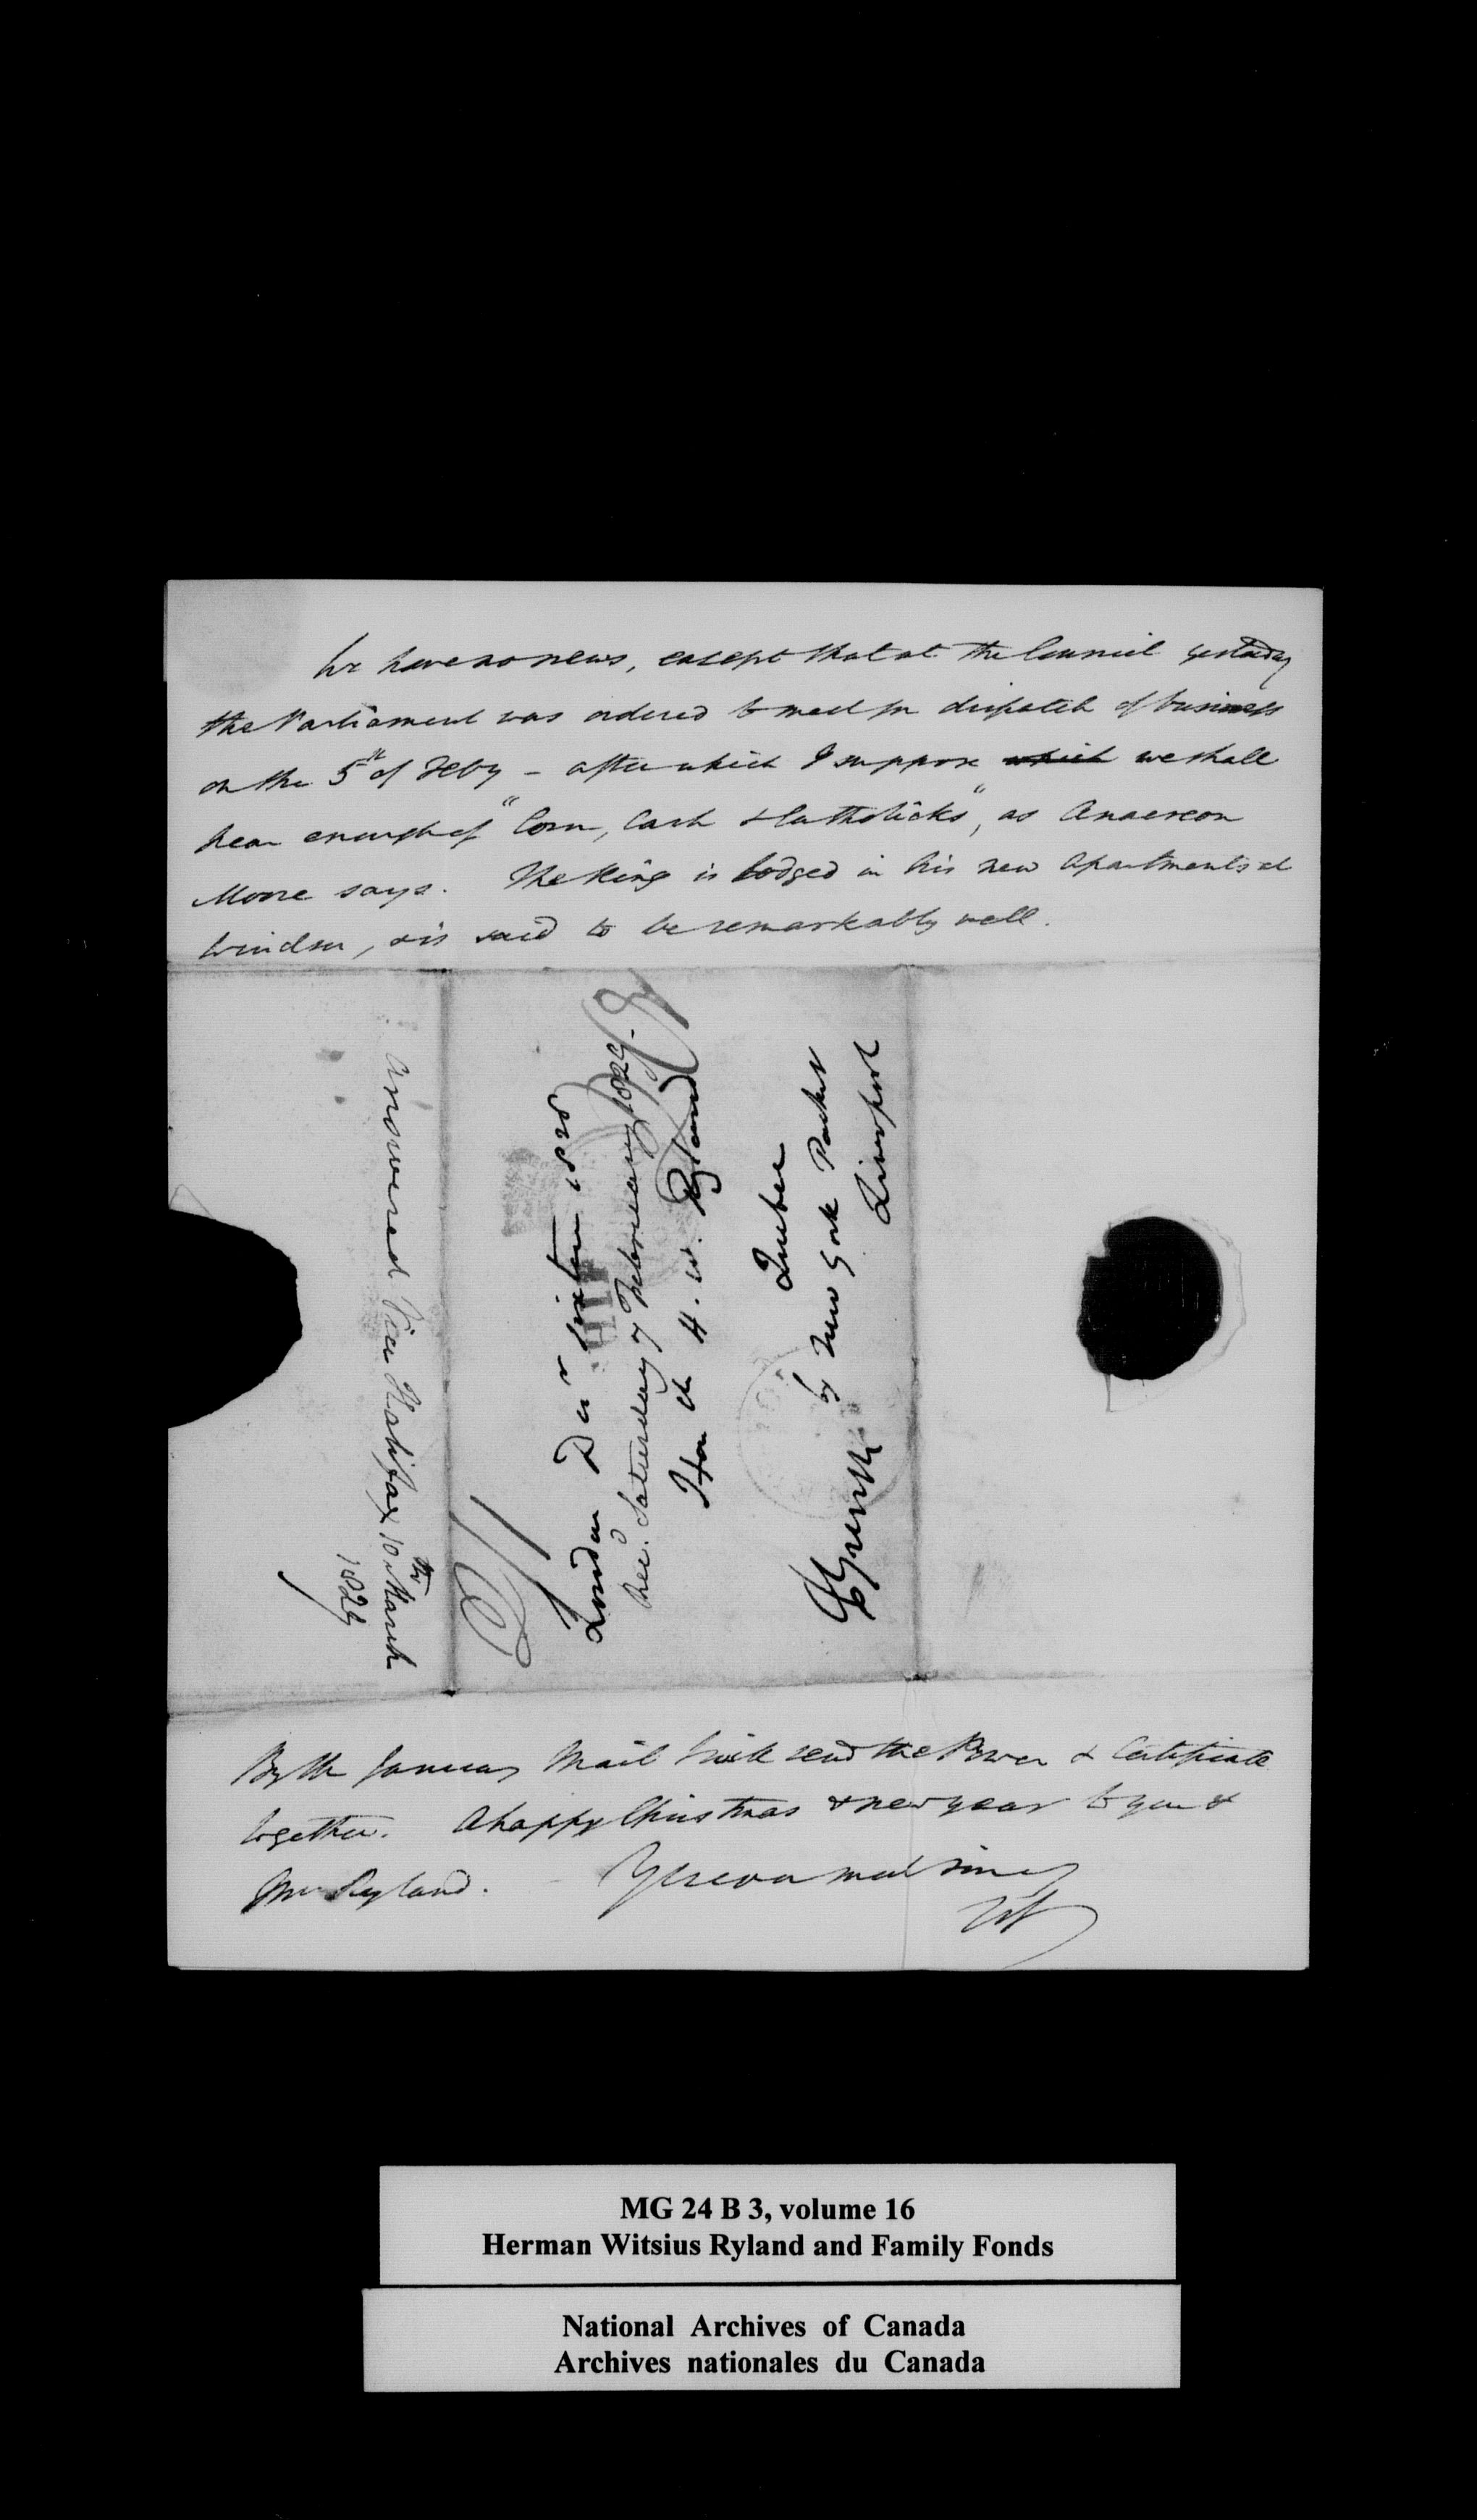 We have no news, except that at the Council yesterday
the Parliament was ordered to meet for dispatch of business
on the 5th of Feby – after which I suppose which we shall
hear enough of "Corn, Cash & Catholicks", as Anacreon
Moore says. The King is lodged in his new apartments at
Windsor, & is said to be remarkably well.
Answered Via Halifax 10th March
1829
London Decr sixteen 1828
Rec'd. Saturday 7 February 1829-
Honble H. W. Ryland
Quebec
by New York Packet
Liverpool
By the January Mail I will send the Power & Certificate
together. A happy Christmas & new year to you &
Mrs Ryland. Yrs ever most sincerely
MG 24 B 3, volume 16
Herman Witsius Ryland and Family Fonds
National Archives of Canada
Archives nationales du Canada